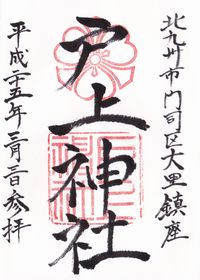 北九州市門司区大里鎮座
戸上神社
平成二十五年三月三日参拝